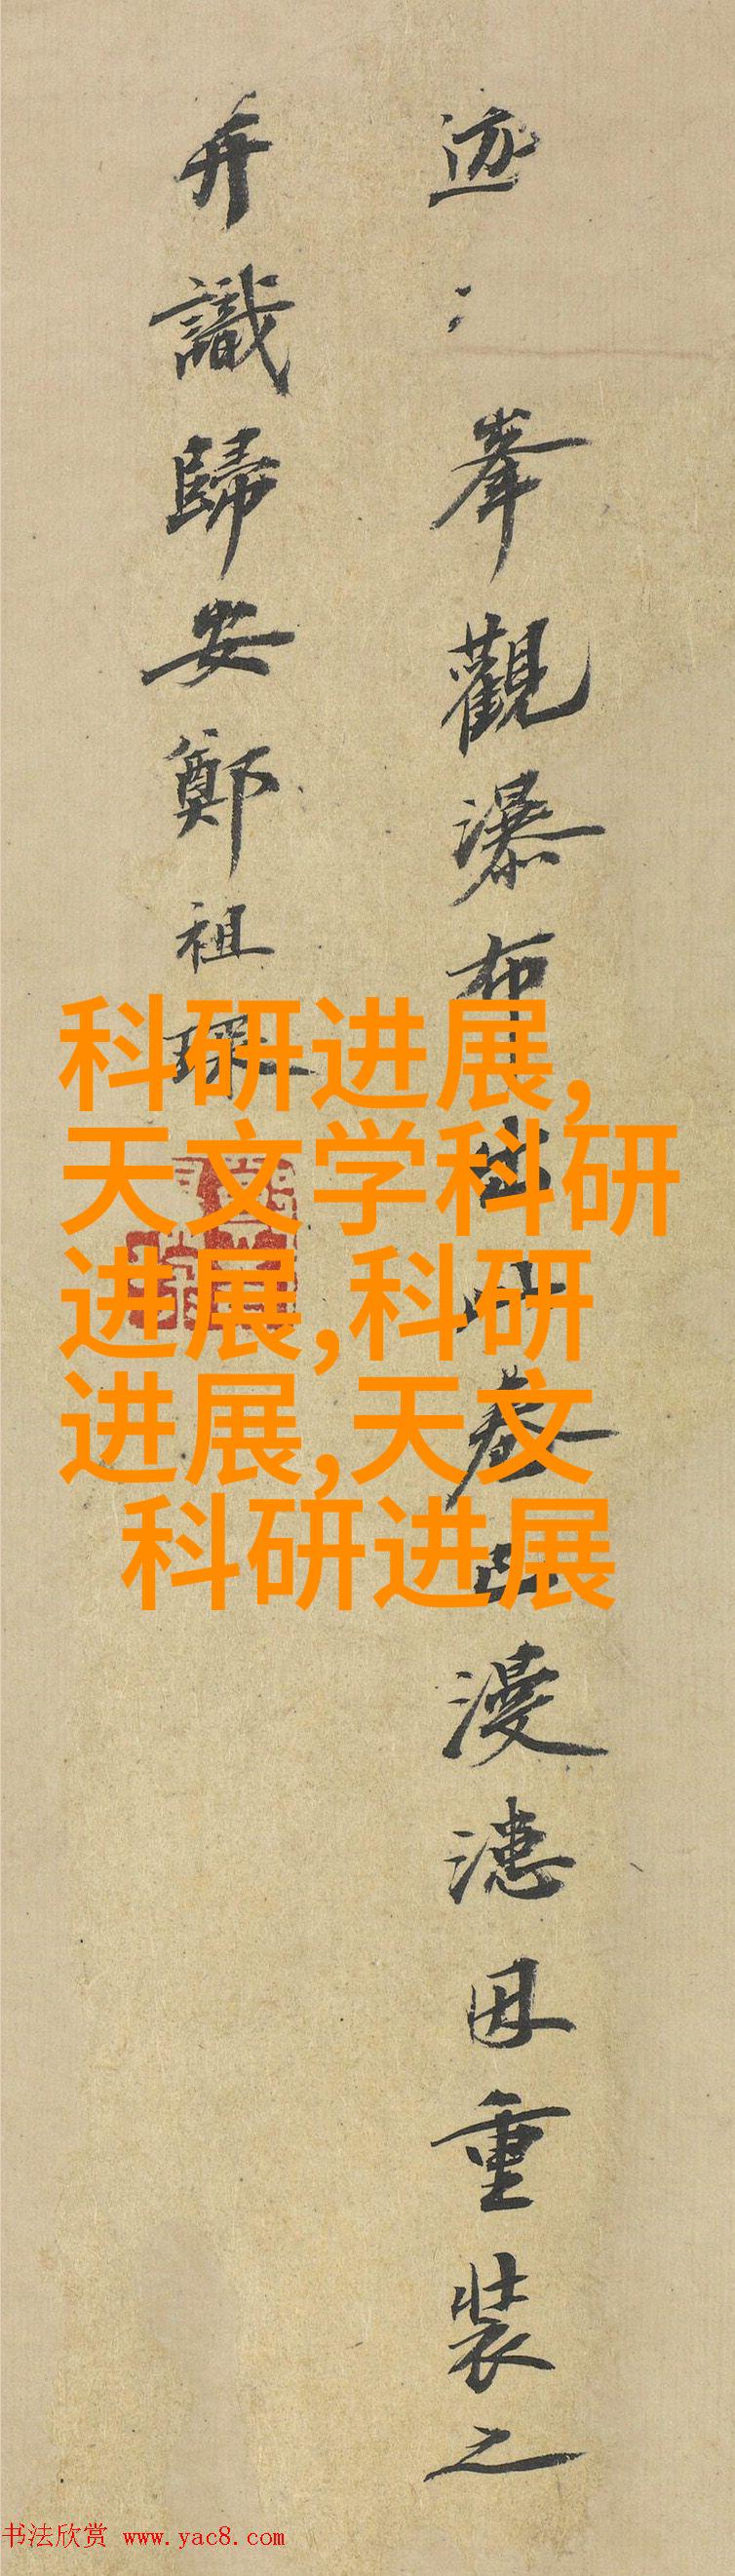 迹峯觀瀑布出卷已漫漶因重裝之
弄識歸安鄭祖琛
科研进展,
天文学科研
进展,科研
进展,天文
科研进展
书法欣赏 www.yac8.com